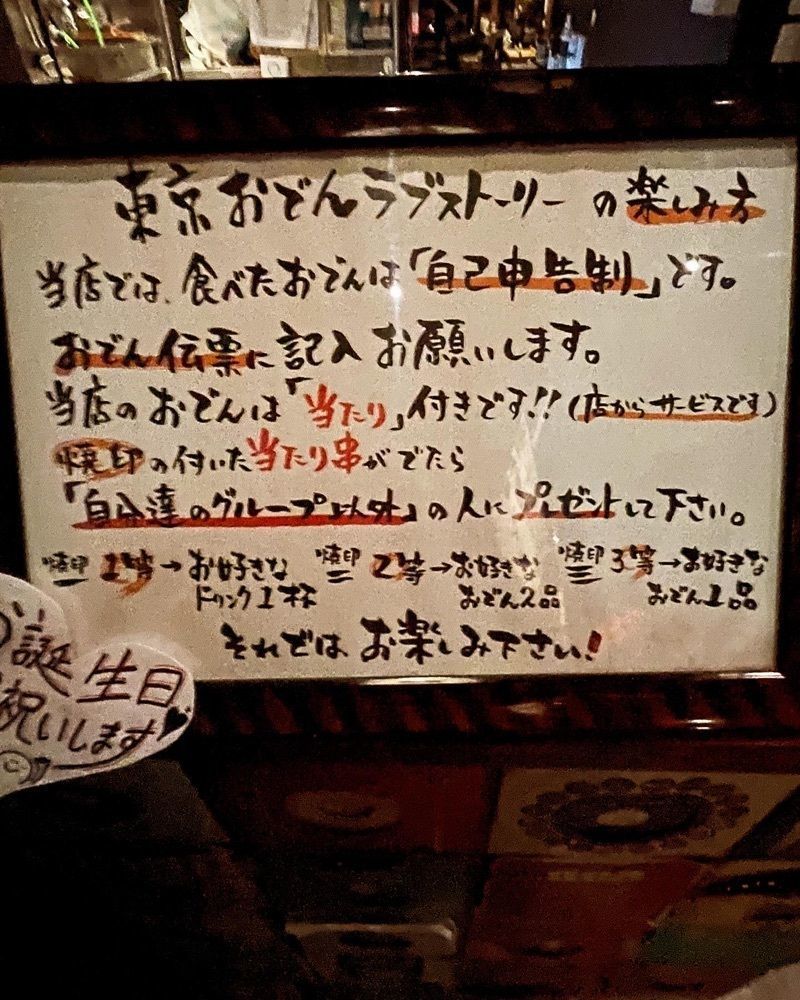 東京おでんラブストーリーの楽しみ方
当店では、食べたおでんは「自己申告制」です。
おでん伝票に記入お願いします。
当店のおでんは「当たり」付きです!!(店からサービスです)
焼印の付いた当たり串がでたら
「自分達のグループ以外」の人にプレゼントして下さい。
焼印 一 1等→お好きなドリンク1杯
焼印 二 2等→お好きなおでん2品
焼印 三 3等→お好きなおでん1品
それではお楽しみ下さい!
誕生日
祝いします♥